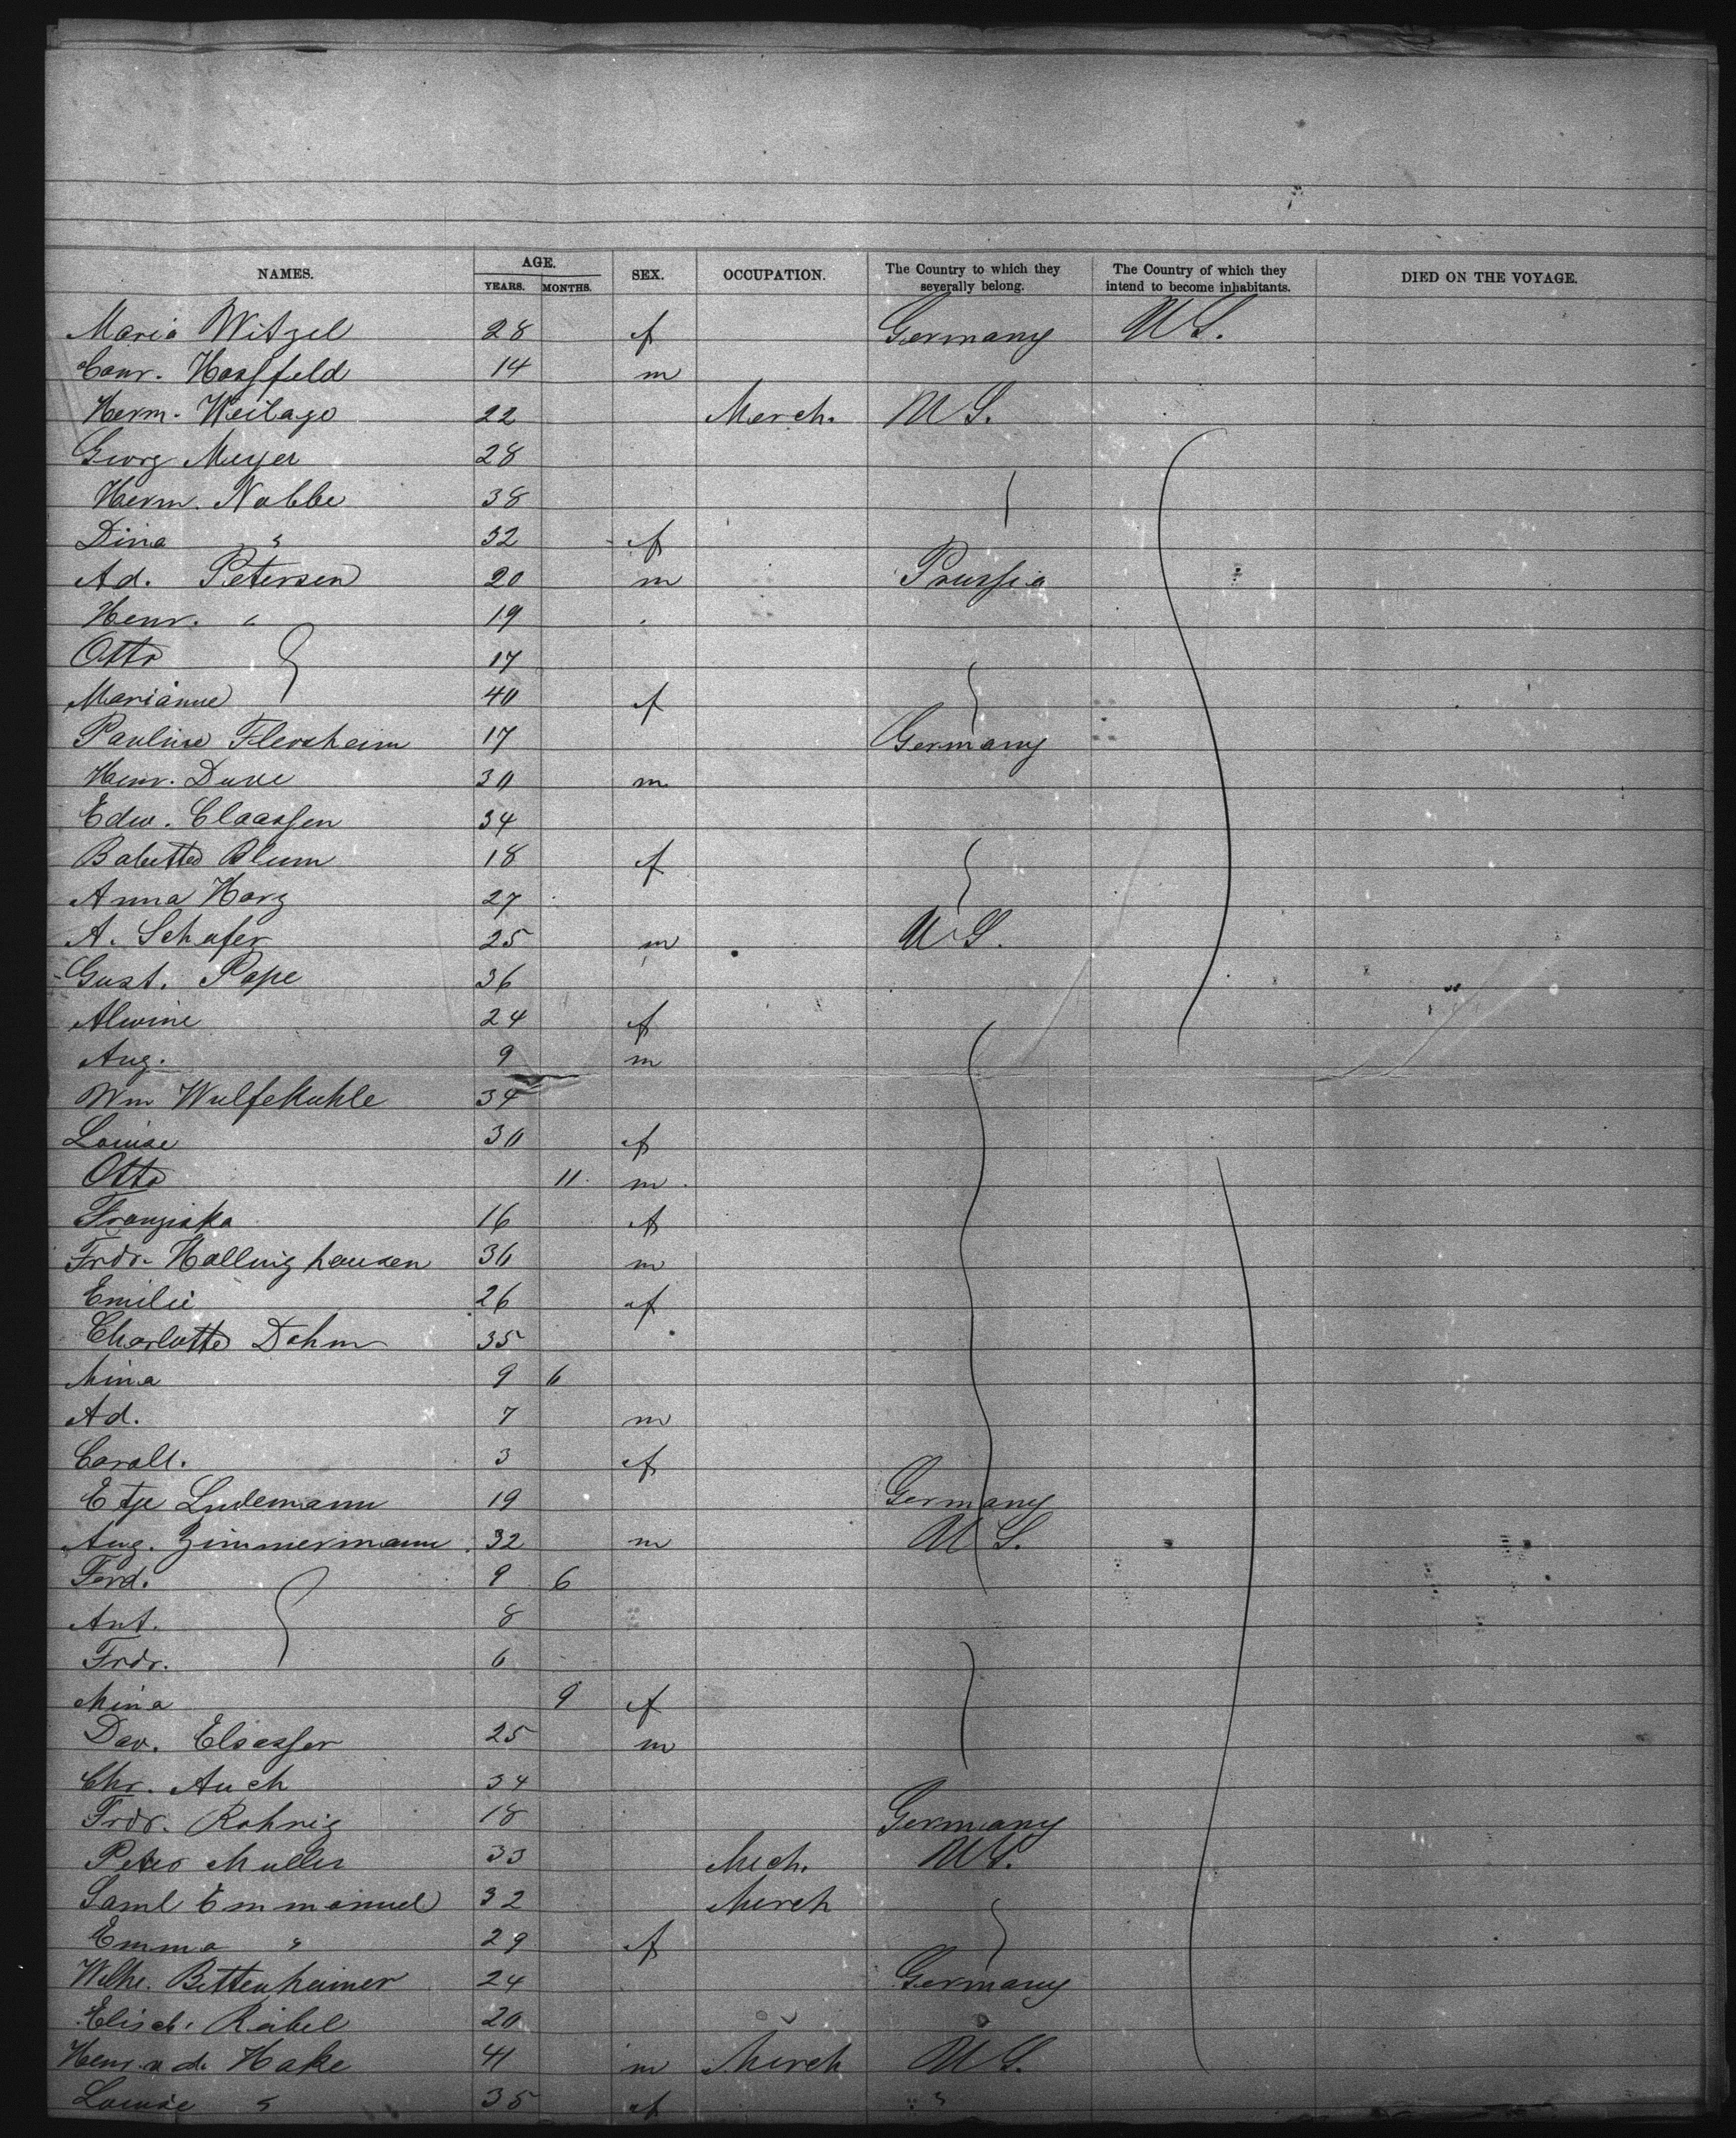 NAMES. AGE. YEARS. MONTHS. SEX. OCCUPATION. The Country to which they severally belong. The Country of which they intend to become inhabitants. DIED ON THE VOYAGE.
Maria Witzel 28 f Germany U S.
Conr. Hossfeld 14 m
Herm. Weilage 22 Merch. U S.
Georg Meyer 28
Herm. Nobbe 38
Dina " 32 f
Ad. Petersen 20 m Prussia
Henr. " 19
Otto 17
Marianne 40 f
Pauline Flersheim 17 Germany
Henr. Duve 30 m
Edw. Claassen 34
Babette Blum 18 f
Anna Harz 27
A. Schafer 25 m U S.
Gust. Pape 36
Alwine 24 f
Aug. 9 m
Wm Wulfekuhle 34
Louise 30 f
Otto 11 m
Franziska 16 f
Frdr. Hollinghausen 30 m
Emilie 26 f
Charlotte Dahm 35
Mina 9 6
Ad. 7 m
Caroll. 3 f
Etje Ludemann 19 Germany
Aug. Zimmermann 32 m U S.
Ferd. 9 6
Ant. 8
Frdr. 6
Mina 9 f
Dav. Elsasser 25 m
Chr. Auch 34
Frdr. Rohrig 18 Germany
Peter Muller 33 Mech. U S.
Saml Emmanuel 32 Merch
Emma " 29 f
Wilhe. Bettenheimer 24 Germany
Elisab. Reibel 20
Henr. v d. Hake 41 m Merch U S.
Louise " 35 f "